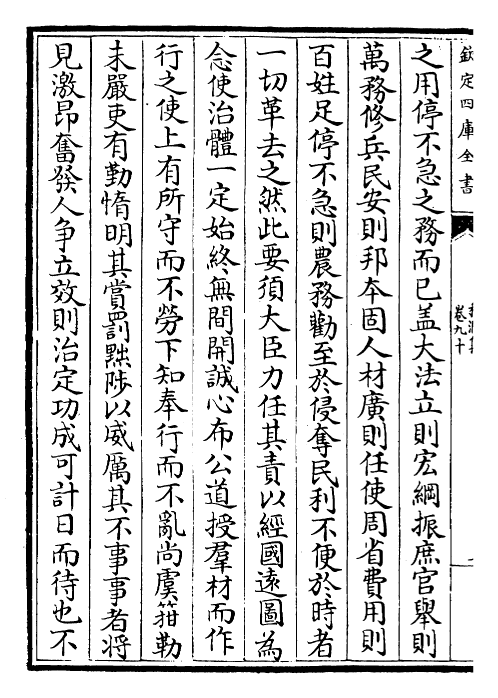 欽定四庫全書
卷九十
之用停不急之務而已盖大法立則宏綱振庶官舉則
萬務修兵民安則邦本固人材廣則任使周省費用則
百姓足停不急則農務勸至於侵奪民利不便於時者
一切革去之然此要須大臣力任其責以經國遠圖為
念使治體一定始終無間開誠心布公道授羣材而作
行之使上有所守而不勞下知奉行而不亂尚虞箝勒
未嚴更有勤惰明其賞罰黜陟以威厲其不事事者將
見激昂奮發人争立效則治定功成可計日而待也不